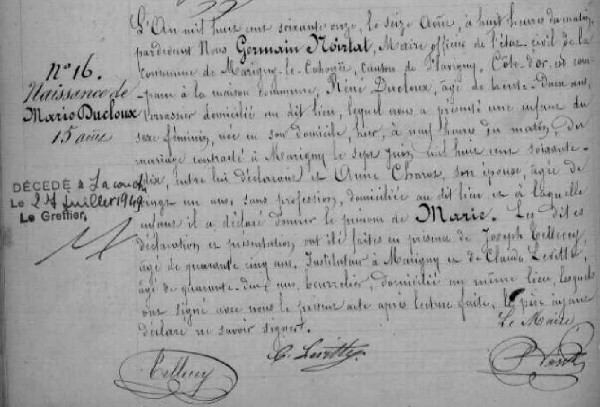 N° 16.
Naissance de
Marie Ducloux
15 août
DÉCÉDÉ à Lacour
Le 27 juillet 1949
Le Greffier,
L'An mil huit cent soixante onze, le seize Août, à huit heures du matin,
pardevant Nous Germain Noirtat, Maire officier de l'état civil de la
commune de Marigny-le-Cahouet, canton de Flavigny, Côte-d'or, est com-
paru à la maison commune, Rémi Ducloux, âgé de trente-deux ans,
terrassier domicilié au dit lieu, lequel nous a présenté une enfant du
sexe féminin, née en son domicile, hier, à neuf heures du matin, du
mariage contracté à Marigny le sept Juin mil huit cent soixante-
dix, entre lui déclarant et Anne Charot, son épouse, âgée de
vingt un ans, sans profession, domiciliée au dit lieu et à laquelle
enfant il a déclaré donner le prénom de Marie. Les dites
déclaration et présentation ont été faites en présence de Joseph
âgé de quarante cinq ans, Instituteur à Marigny et de Claude
âgé de quarante-deux ans, bourrelier, domicilié au même lieu, lesquels
ont signé avec nous le présent acte après lecture faite, le père ayant
déclaré ne savoir signer.
Le Maire,